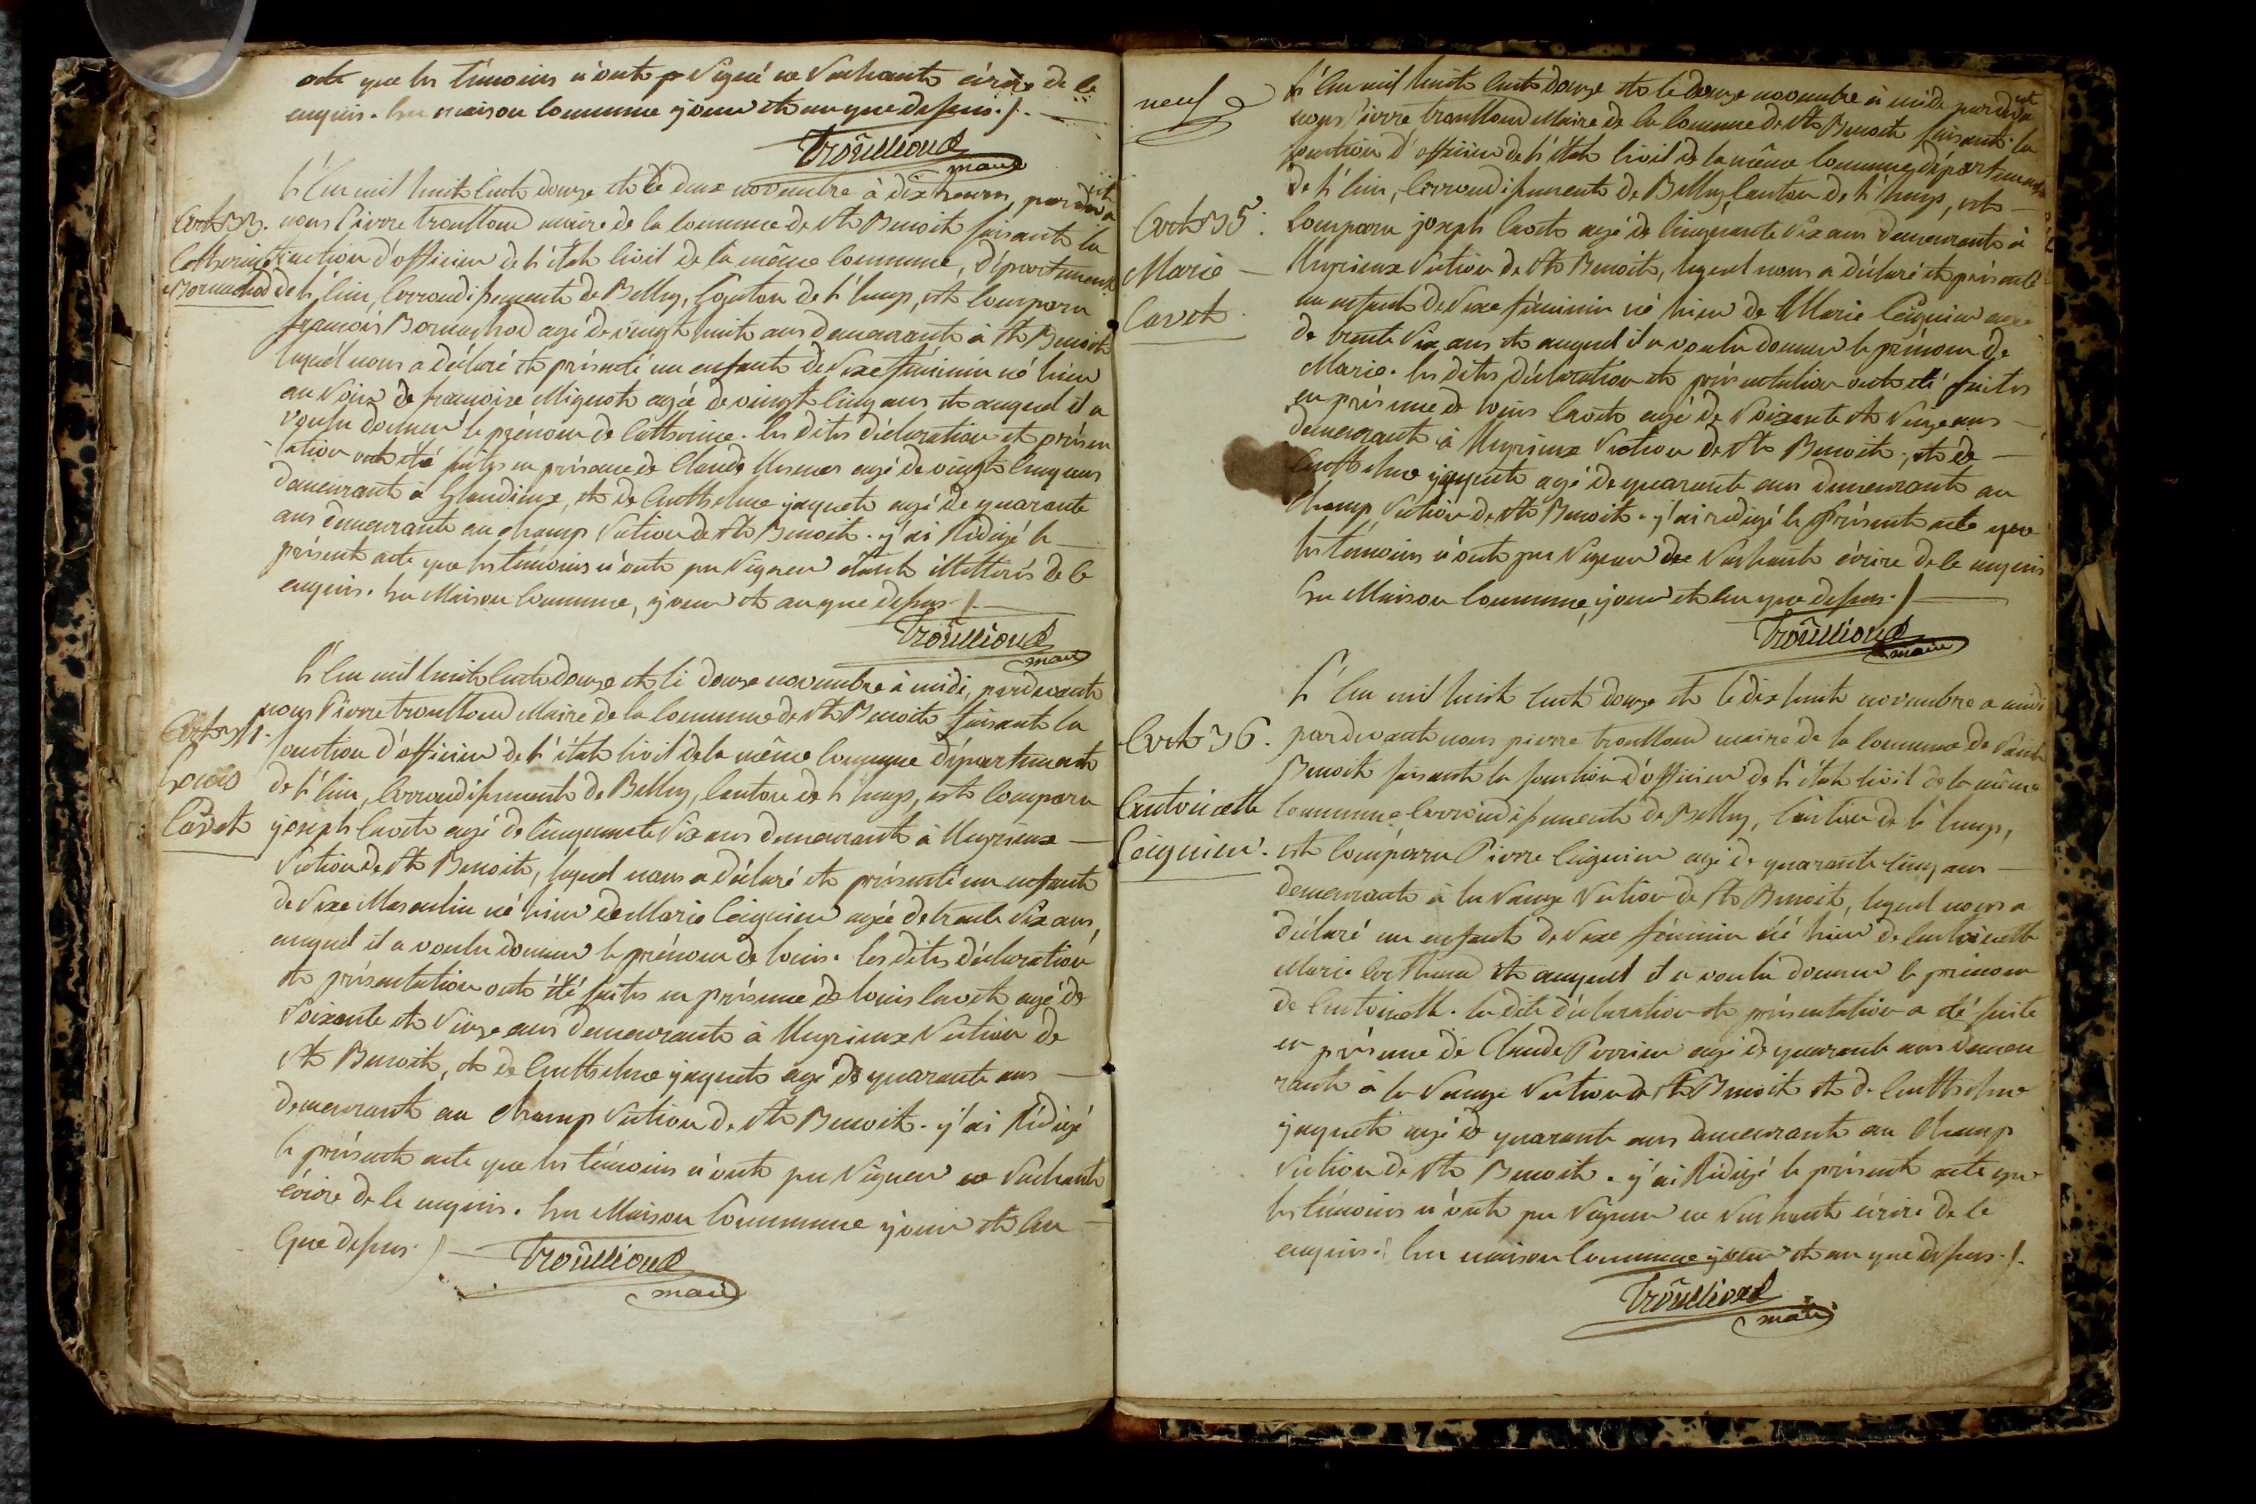 acte que les témoins n'ont pu signé ne sachants écrire de ce
enquis. En maison commune jour et an que dessus./.
Troullioud
maire
L'An mil huit cent douze et le deux novembre à dix heures, pardevant
Acte 33. nous Pierre troulloud maire de la commune de St Benoit faisant la
Catherine fonction d'officier de l'état civil de la même commune, département
Bornarhod de l'Ain, Arrondissement de Belley, Canton de l'huys, est comparu
françois Bornarhod agé de vingt huit ans demeurant à St Benoit
lequel nous a déclaré et présenté un enfant de sexe féminin né hier
au soir de françoise Mignot agée de vingt cinq ans et auquel il a
voulu donner le prénom de Catherine. les dites déclaration et présen
tation ont été faites en présence de Claude agé de vingt cinq ans
demeurant à Glandieux, et de Anthelme jaquet agé de quarante
ans demeurant au champ section de St Benoit. j'ai Rédigé le
présent acte que les témoins n'ont pu signer étant illettérés de ce
enquis. En Maison Commune, jour et an que dessus./.
Troullioud
maire
L'An mil huit cent douze et le douze novembre à midi, pardevant
nous Pierre troulloud Maire de la commune de St Benoit faisant la
Acte 34. fonction d'officier de l'état civil de la même commune département
Louis de l'Ain, Arrondissement de Belley, Canton de l'huys, est comparu
Cavet joseph Cavet agé de cinquante six ans demeurant à Meyrieux
section de St Benoit, lequel nous a déclaré et présenté un enfant
de sexe Masculin né hier de Marie Ceignier agée de trente six ans,
auquel il a voulu donner le prénom de Louis. les dites déclaration
et présentation ont été faites en présence de Louis Cavet agé de
soixante et seize ans demeurant à Meyrieux section de
St Benoit, et de Anthelme jaquet agé de quarante ans
demeurant au champ section de St Benoit. j'ai Rédigé
le présent acte que les témoins n'ont pu signer ne sachant
écrire de le enquis. En Maison Commune jour et An
Que dessus./
Troullioud
maire
neuf
L'An mil huit cent douze et le douze novembre à midi pardevant
nous Pierre troulloud Maire de la commune de St Benoit faisant la
fonction d'officier de l'état civil de la même commune département
de l'Ain, Arrondissement de Belley, Canton de l'huys, est
Acte 35. Comparu joseph Cavet agé de cinquante six ans demeurant à
Marie Meyrieux section de St Benoit, lequel nous a déclaré et présenté
Cavet. un enfant de sexe féminin né hier de Marie Ceignier agée
de trente six ans et auquel il a voulu donner le prénom de
Marie. les dites déclaration et présentation ont été faites
en présence de Louis Cavet agé de soixante et seize ans
demeurant à Meyrieux section de St Benoit, et de
Anthelme jaquet agé de quarante ans demeurant au
Champ section de St Benoit. j'ai redigé le présent acte que
les témoins n'ont pu signer ne sachant écrire de le enquis
En Maison Commune, jour et An que dessus./
Troullioud
maire
L'An mil huit cent douze et le dix huit novembre a midi
Acte 36. pardevant nous pierre troulloud maire de la commune de saint
Benoit faisant la fonction d'officier de l'état civil de la même
Antoinette commune Arrondissement de Belley, Canton de l'huys,
Ceignier. est comparu Pierre Ceignier agé de quarante cinq ans
demeurant à la sauge section de St Benoit, lequel nous a
déclaré un enfant de sexe féminin né hier de Antoinette
Marie et auquel il a voulu donner le prénom
de Antoinette. la dite déclaration et présentation a été faite
en présence de Claude Perrier agé de quarante ans demeu
rant à la sauge section de St Benoit et de Anthelme
jaquet agé de quarante ans demeurant au Champ
section de St Benoit. j'ai Rédigé le présent acte que
les témoins n'ont pu signer ne sachant écrire de le
enquis. En maison Commune jour et an que dessus./.
Troullioud
maire